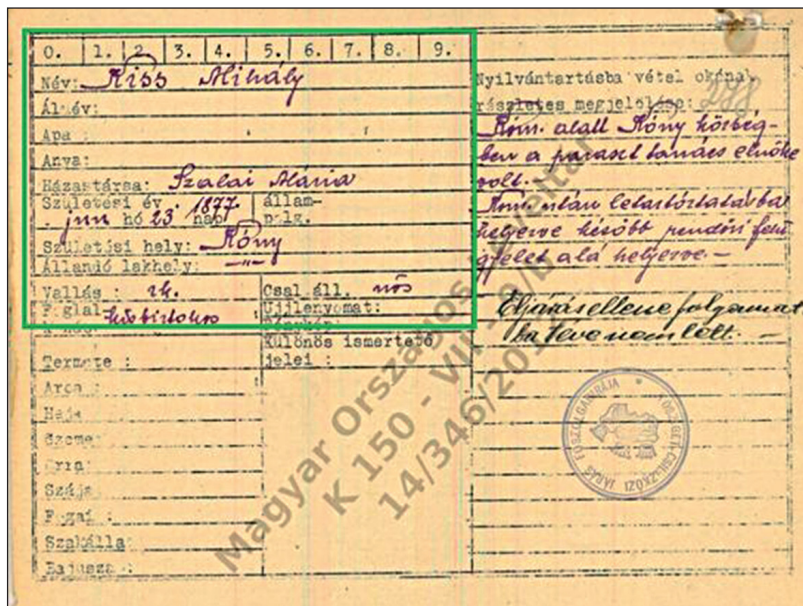 0. 1. 2. 3. 4. 5. 6. 7. 8. 9.
Név: Kiss Mihály
Álnév:
Apa :
Anya:
Házastársa: Szalai Mária
Születési év 1877 állam-
jun hó 23 nap polg.
Születési hely: Kóny
Állandó lakhely: —"—
Vallás : rk. Csal.áll. nős
Foglal. kisbirtokos Ujjlenyomat:
Különös ismertető
Termete : jelei :
Arca :
Haja
Szeme:
Orra:
Szája
Fogai :
Szakálla:
Bajusza :
Nyilvántartásba vétel okának
részletes megjelölése: 278
Kom. alatt Kóny község-
ben a paraszt tanács elnöke
volt.
Kom. után letartóztatásba
helyezve később rendőri felü
gyelet alá helyezve.—
Eljárás ellene folyamat
ba téve nem lett. —
JÁRÁS FŐSZOLGABIRÁJA
Magyar Országos Levéltár
K 150 - VII -
14/346/201